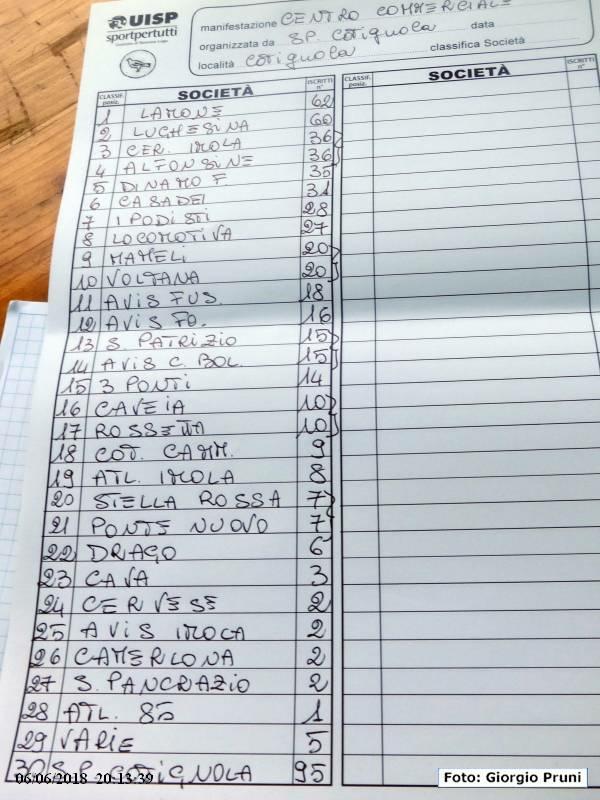 UISP
sportpertutti
manifestazione CENTRO COMMERCIALE
organizzata da SP. Cotignola data
località Cotignola classifica Società
CLASSIF. posiz. SOCIETÀ ISCRITTI n°
CLASSIF. posiz. SOCIETÀ ISCRITTI n°
1 LAMONE 62
2 LUGHESINA 60
3 CER. IMOLA 36
4 ALFONSINE 36
5 DINAMO F. 35
6 CASADEI 31
7 IPODISTI 28
8 LOCOMOTIVA 27
9 MAMELI 20
10 VOLTANA 20
11 AVIS FUS. 18
12 AVIS FO. 16
13 S. PATRIZIO 15
14 AVIS C. BOL. 15
15 3 PONTI 14
16 CAVEIA 10
17 ROSSETTA 10
18 COT. CAMM. 9
19 ATL. IMOLA 8
20 STELLA ROSSA 7
21 PONTE NUOVO 7
22 DRAGO 6
23 CAVA 3
24 CERVESE 2
25 AVIS IMOLA 2
26 CAMERLONA 2
27 S. PANCRAZIO 2
28 ATL. 85 1
29 VARIE 5
30 S.P. COTIGNOLA 95
06/06/2018 20:13:39
Foto: Giorgio Pruni